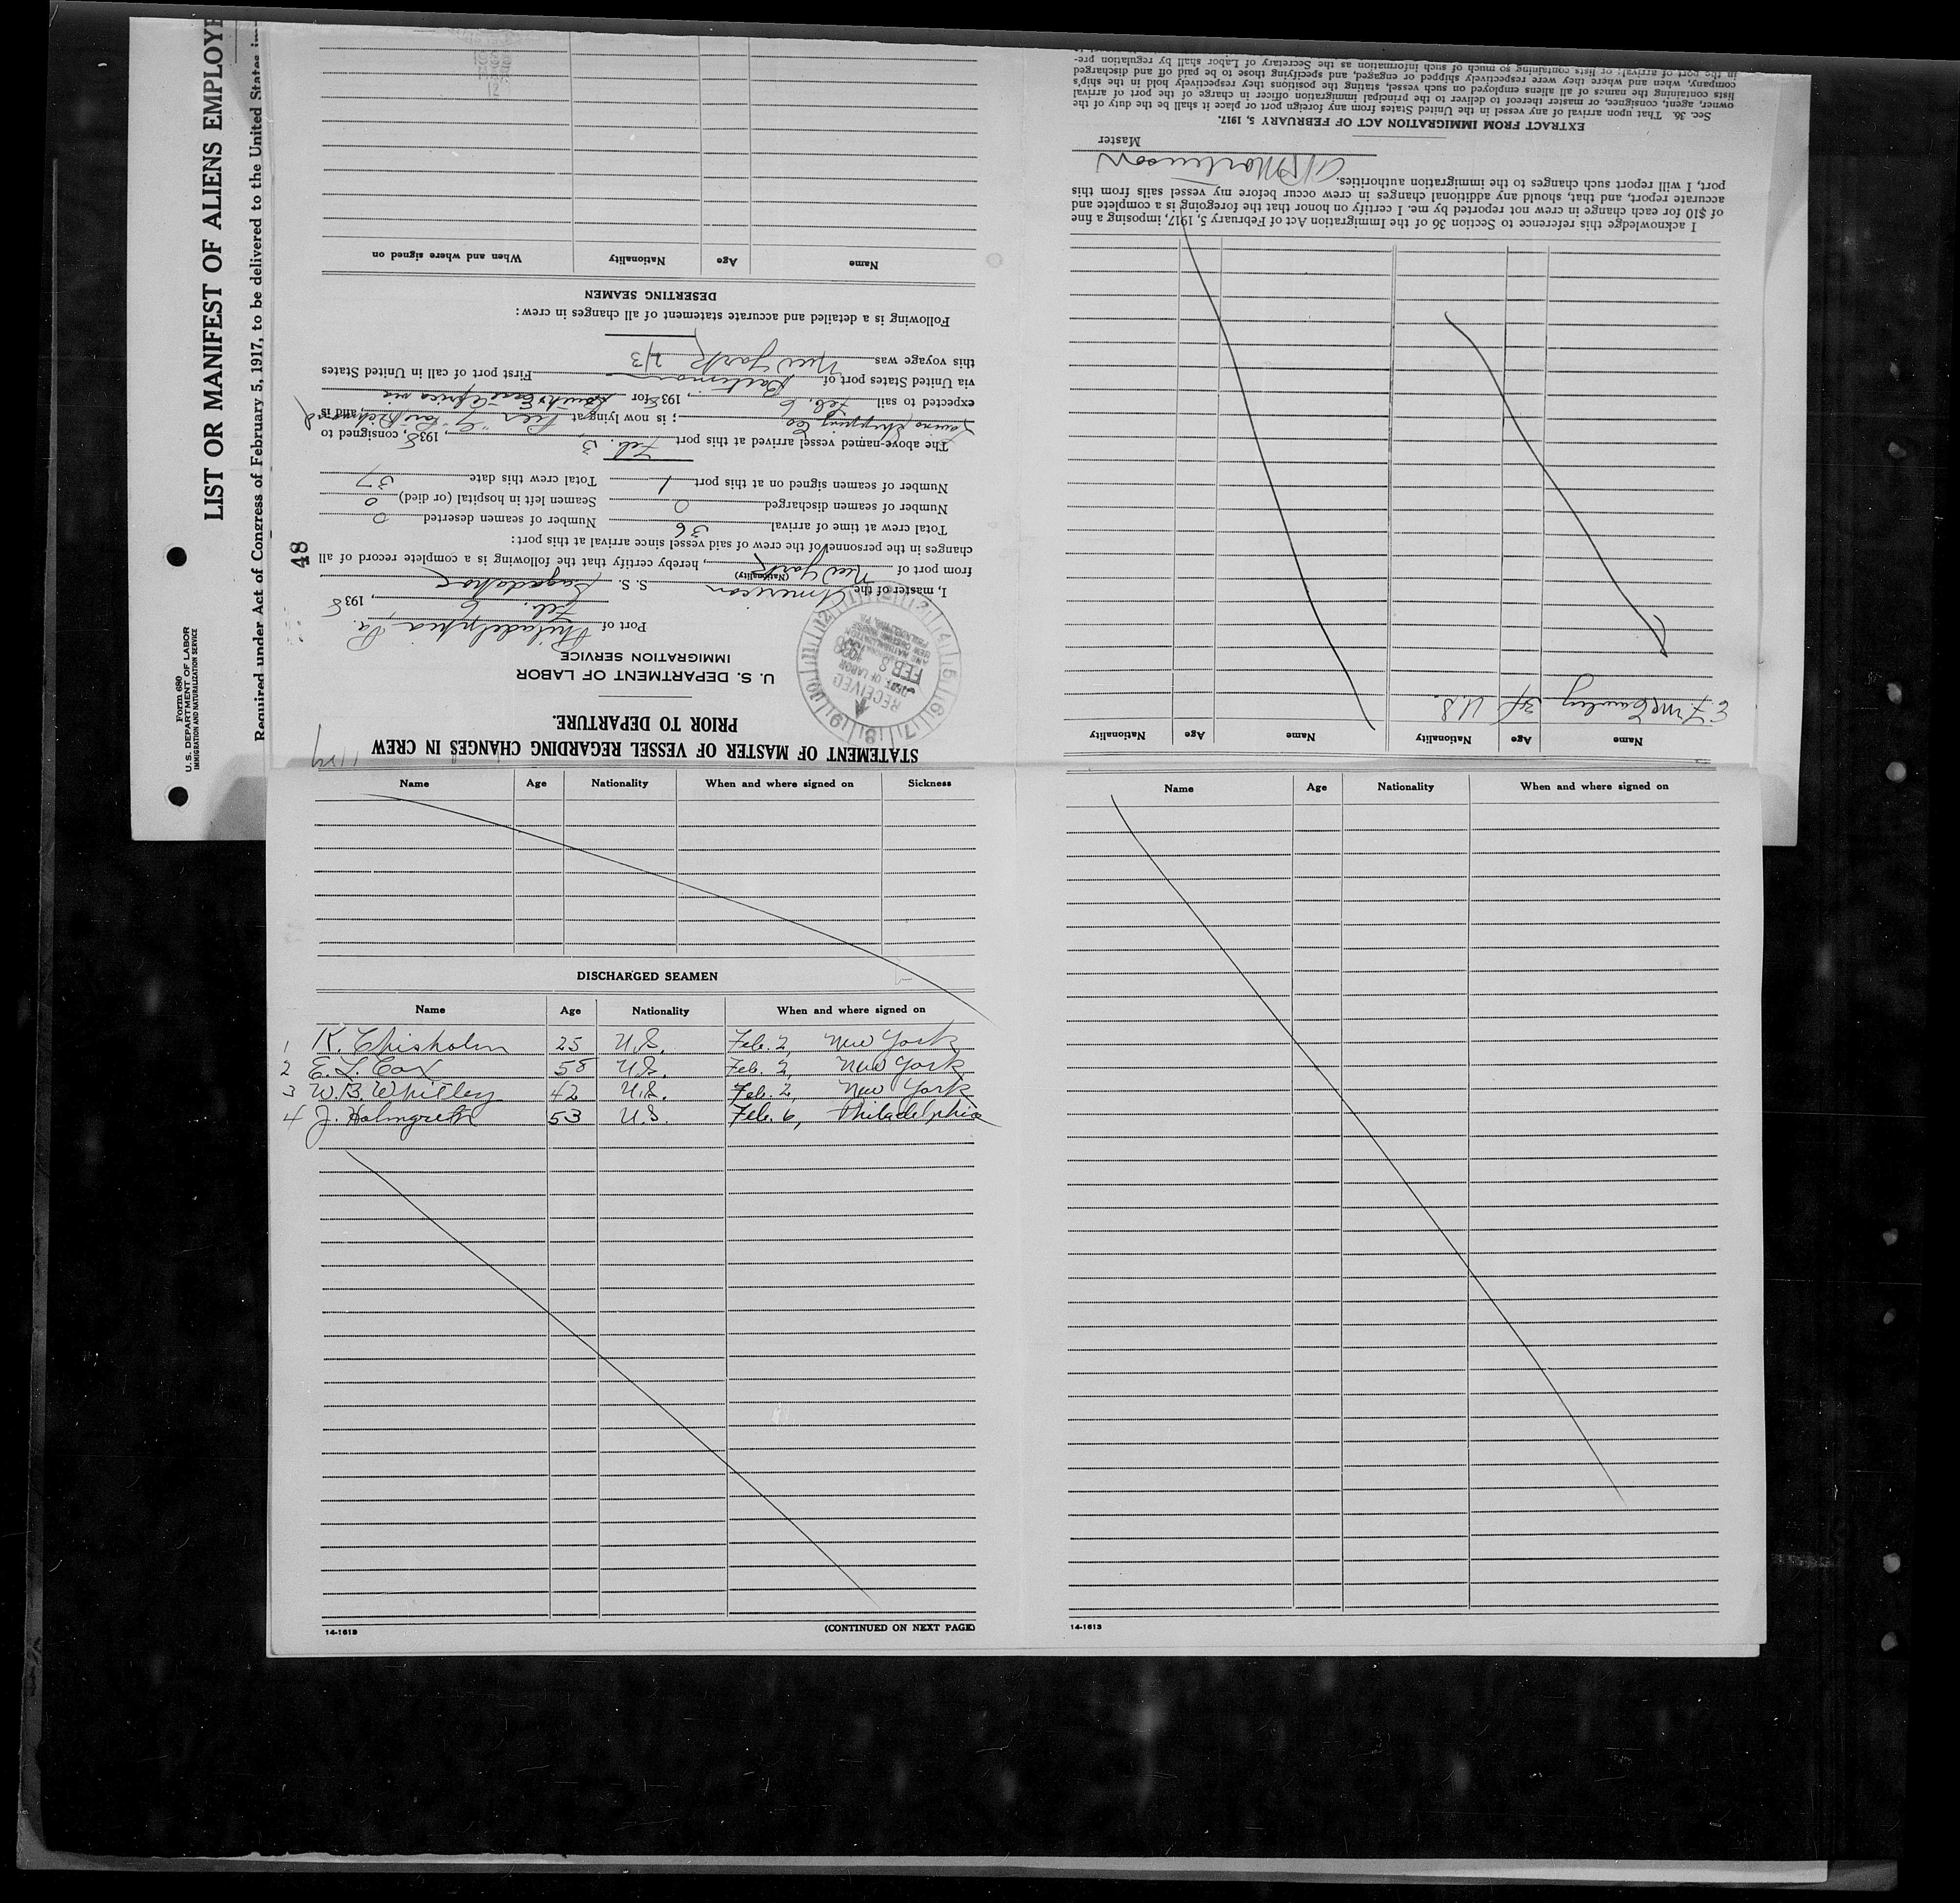 LIST OR MANIFEST OF ALIENS EMPLOYE
Required under Act of Congress of February 5, 1917, to be delivered to the United States im
Form 680
U. S. DEPARTMENT OF LABOR
IMMIGRATION AND NATURALIZATION SERVICE
48
STATEMENT OF MASTER OF VESSEL REGARDING CHANGES IN CREW
PRIOR TO DEPARTURE.
U. S. DEPARTMENT OF LABOR
IMMIGRATION SERVICE
RECEIVED
FEB 8
Port of Philadelphia Pa.
Feb. 6, 1938
I, master of the American S. S. Sagadahoc
(Nationality)
from port of New York, hereby certify that the following is a complete record of all
changes in the personnel of the crew of said vessel since arrival at this port:
Total crew at time of arrival 36 Number of seamen deserted 0
Number of seamen discharged 0 Seamen left in hospital (or died) 0
Number of seamen signed on at this port 1 Total crew this date 37
The above-named vessel arrived at this port Feb. 3, 1938, consigned to
Shipping Co; is now lying at Pier "G" Port Richmond, and is
expected to sail Feb. 6, 1938 for South & East Africa via
via United States port of Baltimore First port of call in United States
this voyage was New York 2/3
Following is a detailed and accurate statement of all changes in crew:
DESERTING SEAMEN
Name Age Nationality When and where signed on
Name Age Nationality Name Age Nationality
E. F. McCauley U.S.
I acknowledge this reference to Section 36 of the Immigration Act of February 5, 1917, imposing a fine
of $10 for each change in crew not reported by me. I certify on honor that the foregoing is a complete and
accurate report, and that, should any additional changes in crew occur before my vessel sails from this
port, I will report such changes to the immigration authorities.
Master
EXTRACT FROM IMMIGRATION ACT OF FEBRUARY 5, 1917.
Sec. 36. That upon arrival of any vessel in the United States from any foreign port or place it shall be the duty of the
owner, agent, consignee, or master thereof to deliver to the principal immigration officer in charge of the port of arrival
lists containing the names of all aliens employed on such vessel, stating the positions they respectively hold in the ship's
company, when and where they were respectively shipped or engaged, and specifying those to be paid off and discharged
in the port of arrival; or lists containing so much of such information as the Secretary of Labor shall by regulation pre-
Name Age Nationality When and where signed on Sickness
DISCHARGED SEAMEN
Name Age Nationality When and where signed on
1 K. Chisholm 25 U.S. Feb. 2, New York
2 E. L. Cox 58 U.S. Feb. 2, New York
3 W. B. Whitley 42 U.S. Feb. 2, New York
4 J. Holmgreth 53 U.S. Feb. 6, Philadelphia
14-1613 (CONTINUED ON NEXT PAGE)
Name Age Nationality When and where signed on
14-1613